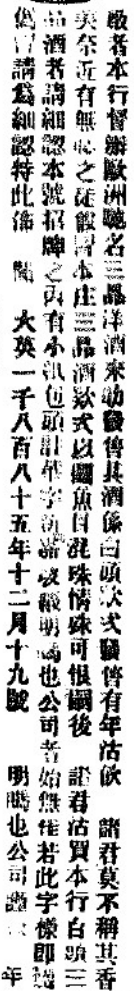 敬者本行督辦歐洲馳名三品洋酒來叻發售其酒係白頭欵式發售有年沽飲 諸君莫不稱其香
美奈近有無之徒假冒本庄三品酒欵式以圖魚目混珠情殊可恨嗣後 諸君沽買本行白頭三
品酒者請細認本號招牌之內有小汎包頭計華字明鴻也公司者始無悞若此字樣即
偽冒請為細認特此佈 聞 大英一千八百八十五年十二月十九號 明鴻也公司謹 年